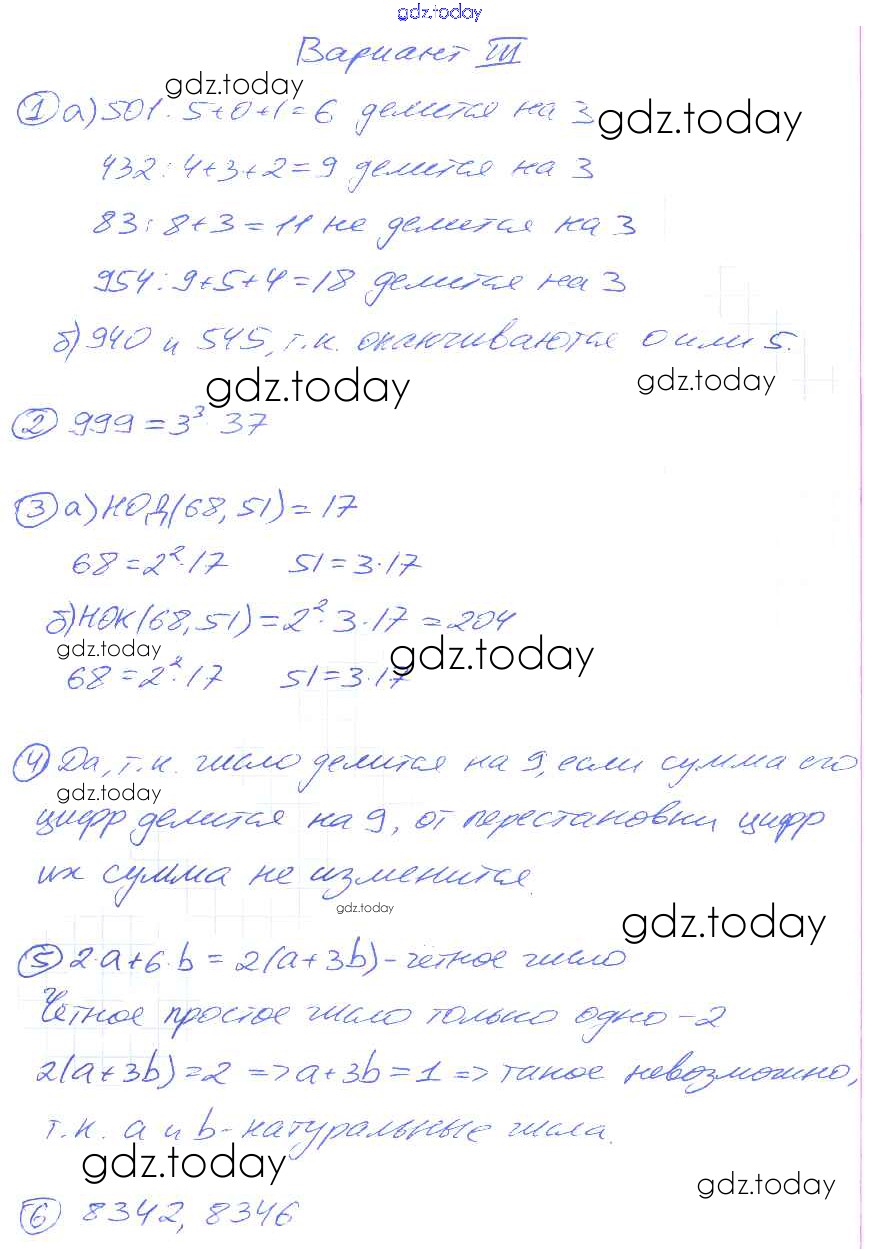 gdz.today
Вариант III
gdz.today
① а) 501: 5+0+1=6 делится на 3
gdz.today
432: 4+3+2=9 делится на 3
83: 8+3=11 не делится на 3
954: 9+5+4=18 делится на 3
б) 940 и 545, т.к. оканчиваются 0 или 5.
gdz.today
gdz.today
② 999=3³·37
③ а) НОД(68, 51)=17
68=2²·17 51=3·17
б) НОК(68, 51)=2²·3·17=204
gdz.today
gdz.today
68=2²·17 51=3·17
④ Да, т.к. число делится на 9, если сумма его
gdz.today
цифр делится на 9, от перестановки цифр
их сумма не изменится.
gdz.today
gdz.today
⑤ 2·a+6·b=2(a+3b)-четное число
Четное простое число только одно -2
2(a+3b)=2 => a+3b=1 => такое невозможно,
т.к. a и b-натуральные числа.
gdz.today
gdz.today
⑥ 8342, 8346